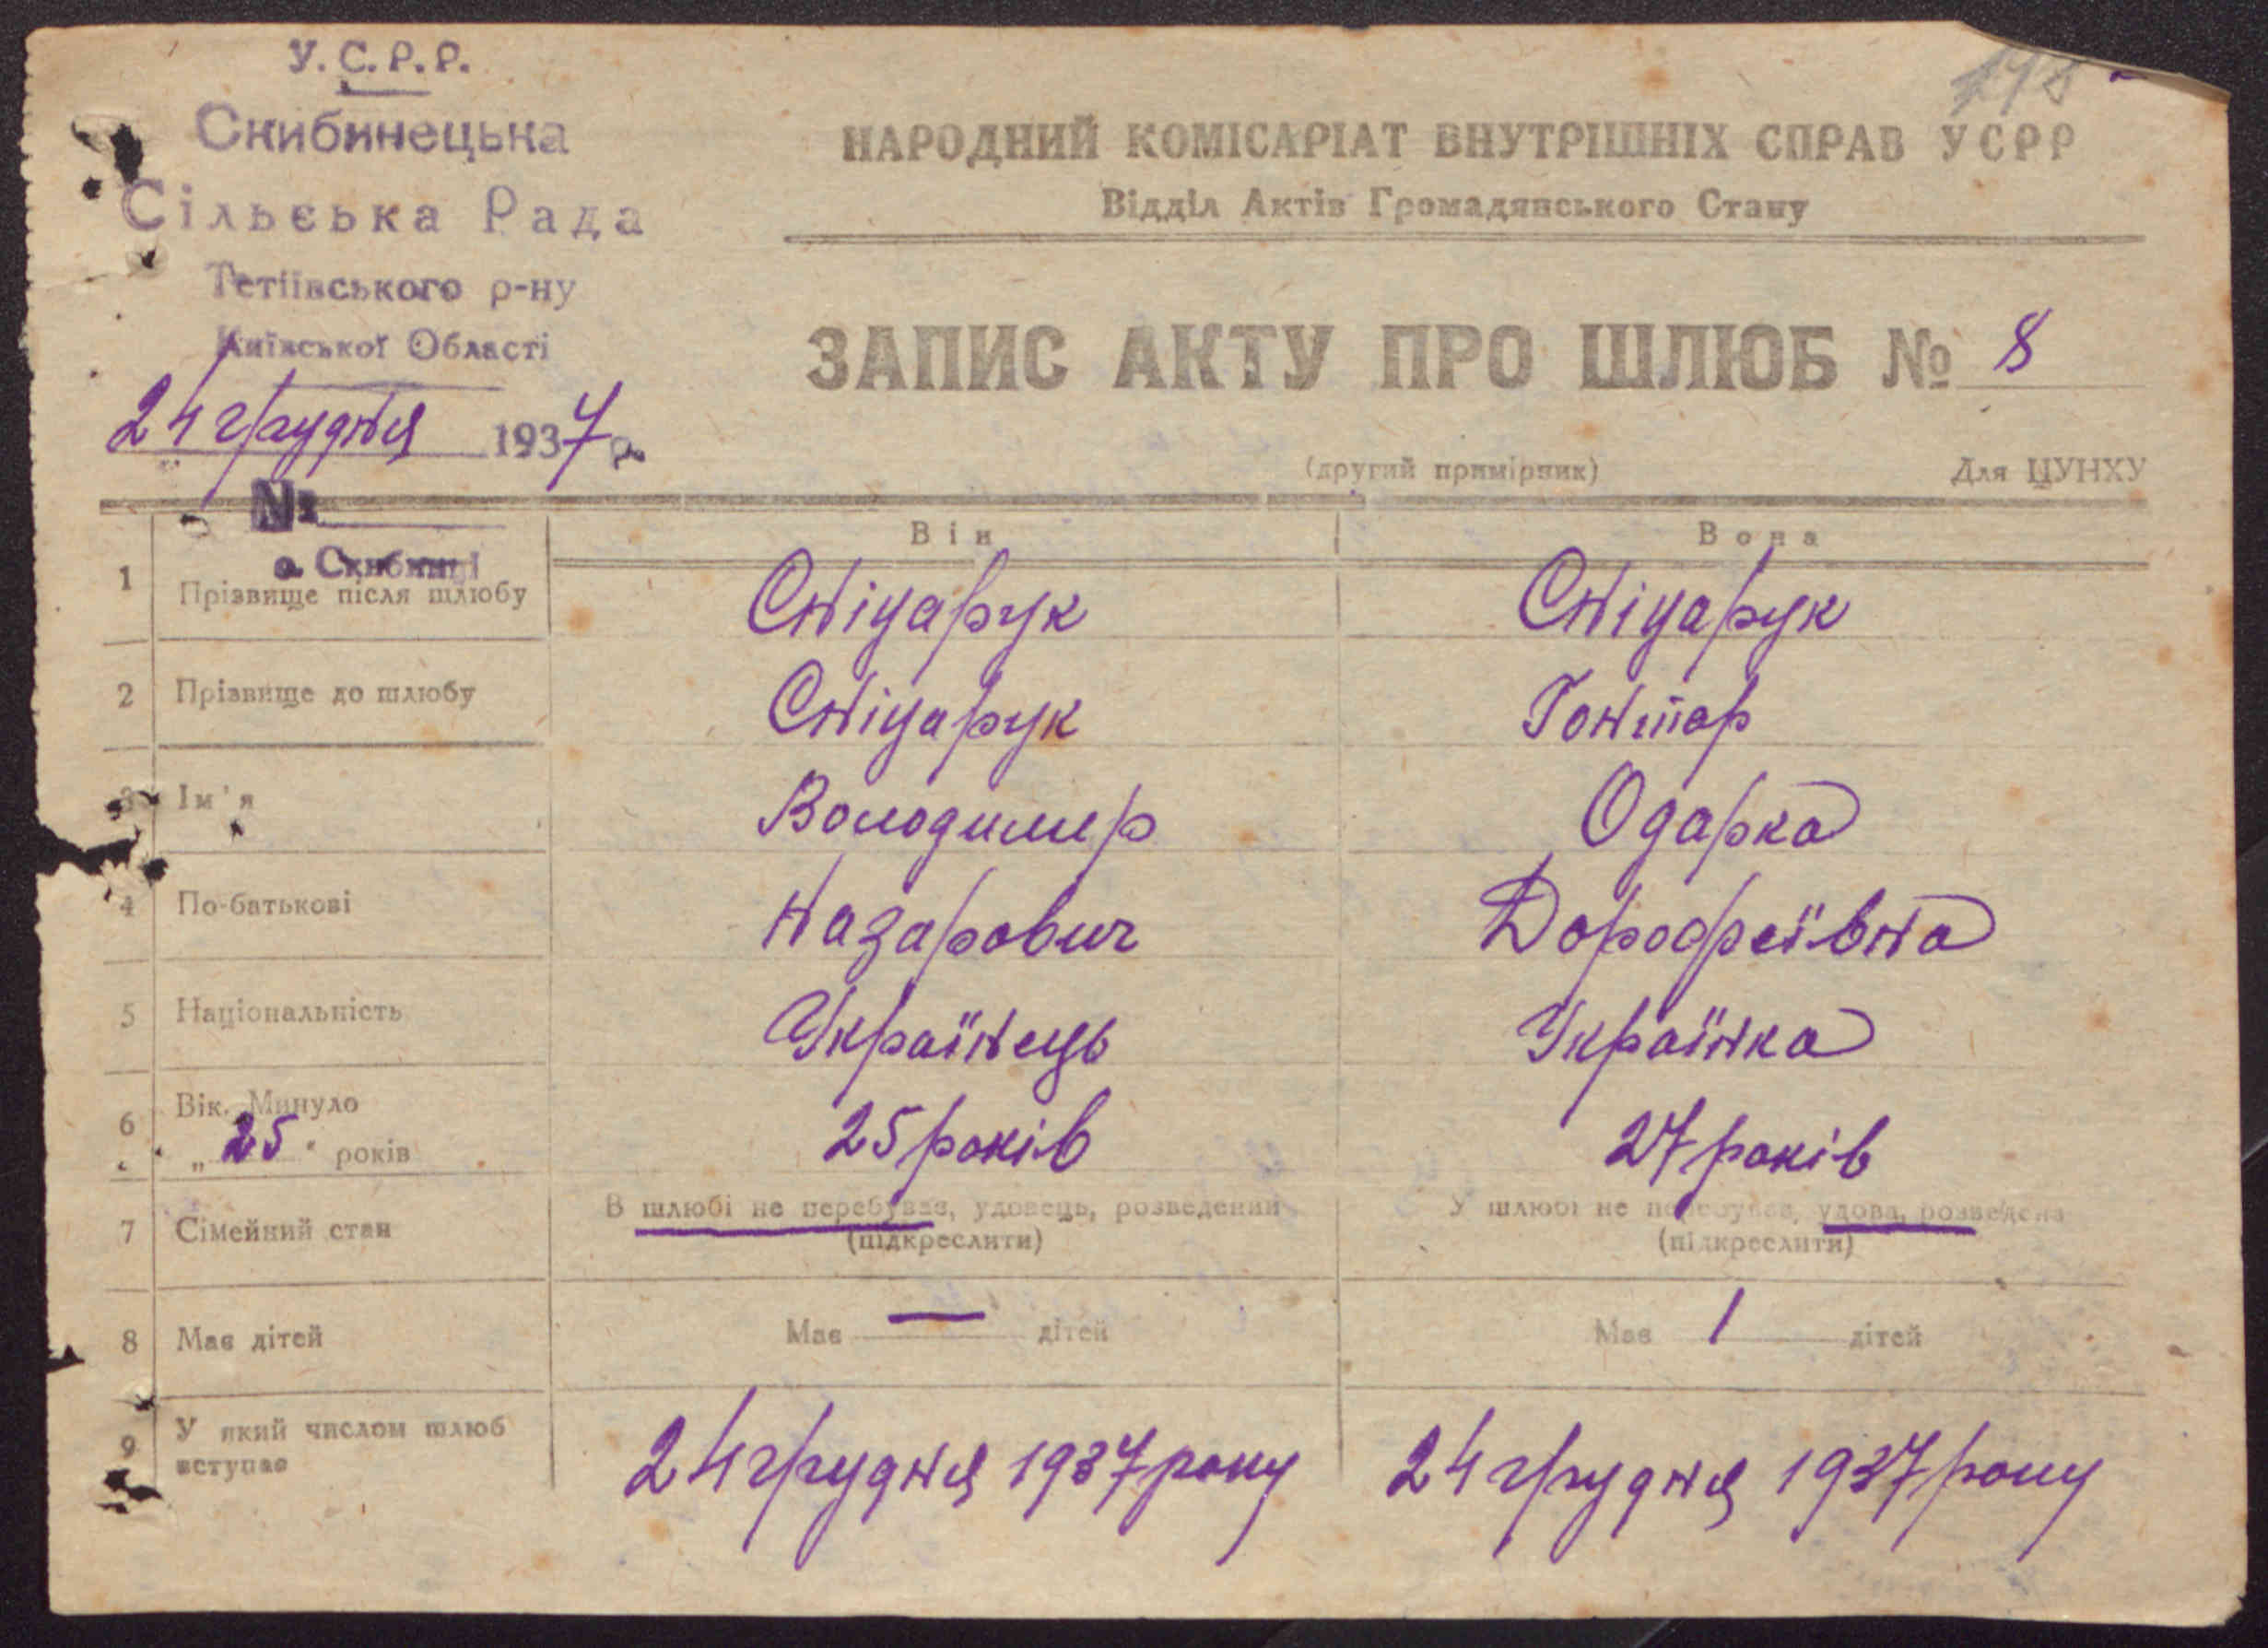 У.С.Р.Р.
Скибинецька
Сільська Рада
Тетіївського р-ну
Київської Області
24 грудня 1937 р.
№
с. Скибинці
НАРОДНИЙ КОМІСАРІАТ ВНУТРІШНІХ СПРАВ УСРР
Відділ Актів Громадянського Стану
ЗАПИС АКТУ ПРО ШЛЮБ № 8
(другий примірник) Для ЦУНХУ
Він Вона
1 Прізвище після шлюбу Сніцарук Сніцарук
2 Прізвище до шлюбу Сніцарук Гонтар
3 Ім'я Володимер Одарка
4 По-батькові Назарович Дорофеївна
5 Національність Українець Українка
6 Вік. Минуло
„25" років 25 років 27 років
7 Сімейний стан В шлюбі не перебував, удовець, розведений У шлюбі не перебував, удова, розведена
(підкреслити) (підкреслити)
8 Має дітей Має — дітей Має 1 дітей
9 У який числом шлюб
вступає 24 грудня 1937 року 24 грудня 1937 року